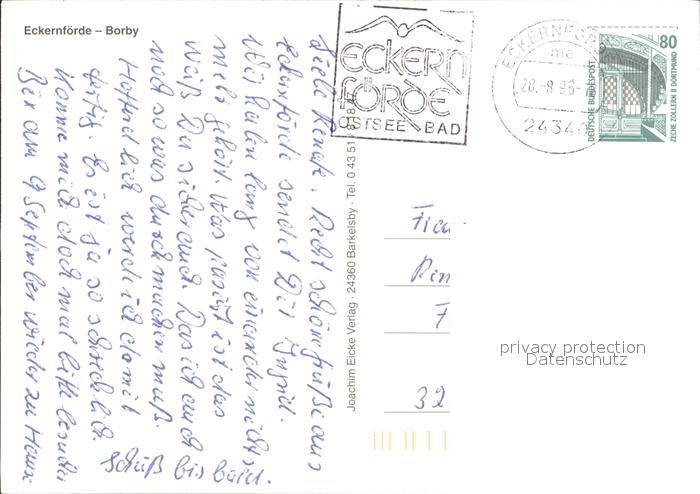 Eckernförde – Borby
Liebe Renate. Recht schöne Grüße aus
Eckernförde sendet Dir Ingrid.
Wir haben lang von einander nichts
mehr gehört. Was passiert ist das
weiß Du sicher auch. Das ich auch
noch so was durchmachen muß.
Hoffendlich werde ich damit
fertig. Es ist ja so schrecklich.
Komme mich doch mal bitte besuchen
Bin am 9 September wieder zu Hause
Tschüß bis bald.
Joachim Eicke Verlag · 24360 Barkelsby · Tel. 0 43 51
ECKERN
FÖRDE
OSTSEE BAD
ECKERNFÖRDE
20.-8.96
24340
80
DEUTSCHE BUNDESPOST
ZECHE ZOLLERN II DORTMUND
Frau
Ren
F
32
privacy protection
Datenschutz